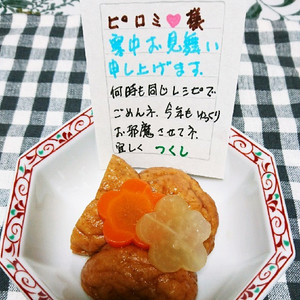 ピロミ♥様
寒中お見舞い
申し上げます。
何時も同じレシピで
ごめんネ、今年もゆっくり
お邪魔させてネ
宜しく つくし